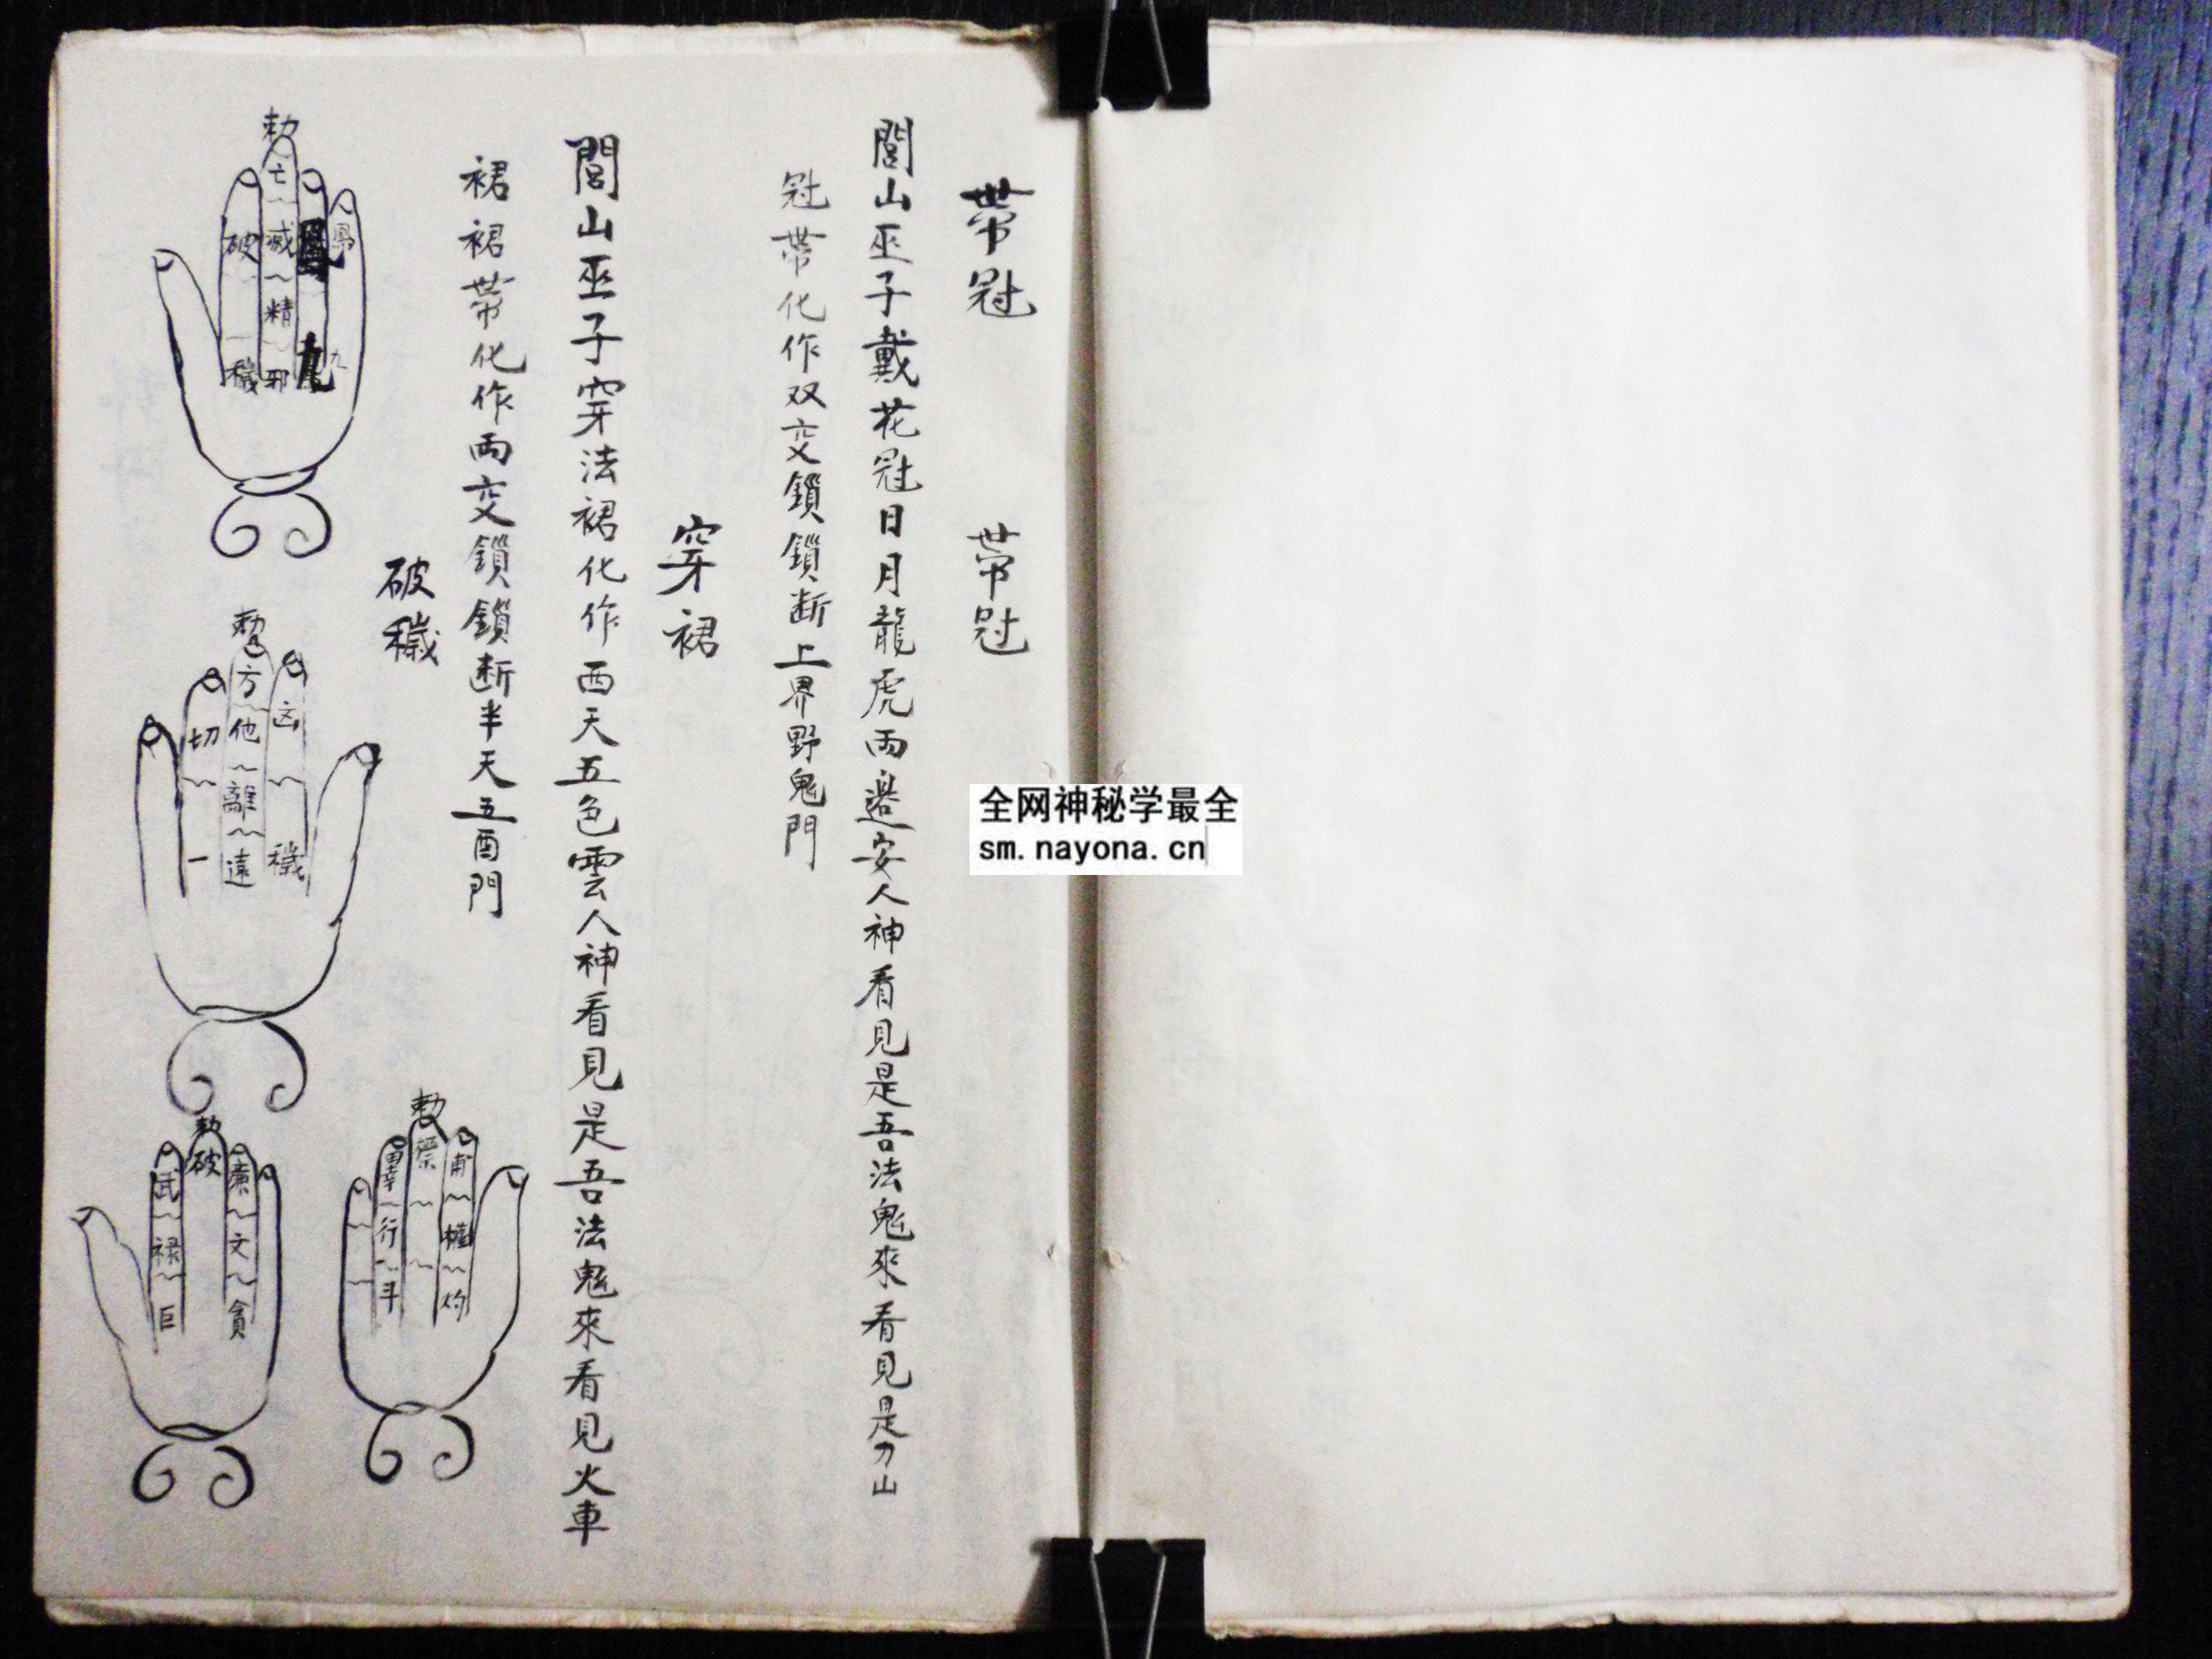 帶冠
帶冠
閭山巫子戴花冠日月龍虎両邉安人神看見是吾法鬼來看見是刀山
冠帶化作双交鎖鎖断上界野鬼門
穿裙
閭山巫子穿法裙化作西天五色雲人神看見是吾法鬼來看見火車
裙裙帶化作両交鎖鎖断半天五酉門
破穢
勅
亡滅精邪
破穢
鳳九
鳳九
勅
方他離遠
切一
穢
勅
行斗
甫權灼
勅
破
武禄巨
廉文貪
全网神秘学最全
sm.nayona.cn